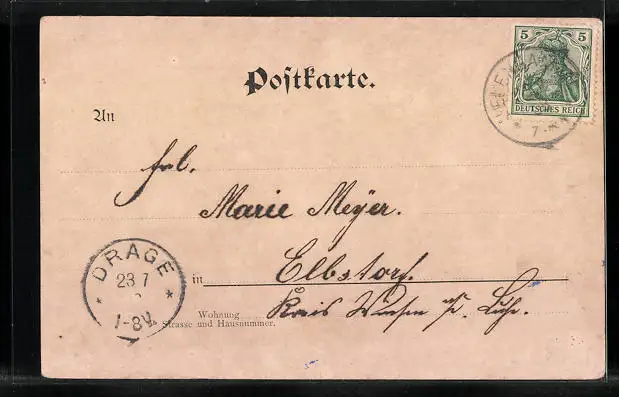 5 5
DEUTSCHES REICH
7
Postkarte.
An
Frl.
Marie Meyer.
DRAGE
23 7
1-8V.
in Elbstorf.
Wohnung Kreis Winsen a/d. Luhe.
Strasse und Hausnummer.